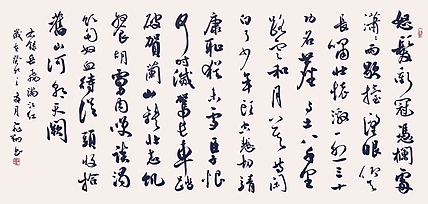 怒髮衝冠憑欄處
瀟瀟雨歇抬望眼仰天
長嘯壯懷激烈三十
功名塵與土八千里
路雲和月莫等閑
白了少年頭空悲切靖
康恥猶未雪臣子恨
何時滅駕長車踏
破賀蘭山缺壯志飢
餐胡虜肉笑談渴
飲匈奴血待從頭收拾
舊山河朝天闕
岳飛滿江紅